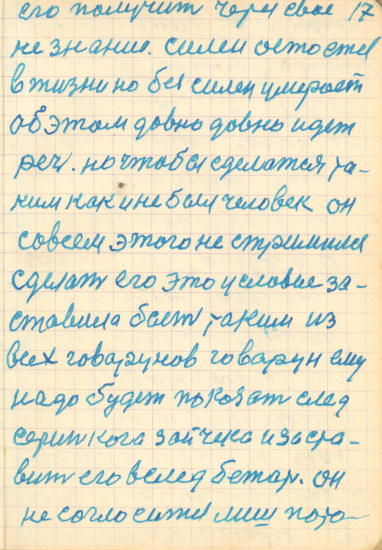 его получит через свое 17
не знание. силен остается
в жизни но без силен умерает
об этом довно довно идет
реч. но чтобы сделатся та-
ким как и не был человек он
совсем этого не стримился
сделат его это условие за-
ставила быт таким из
всех говарунов говарун ему
надо будет показат след
серинкога зайчека и заста-
вит его вслед бежат. он
не согласится лиш пото-